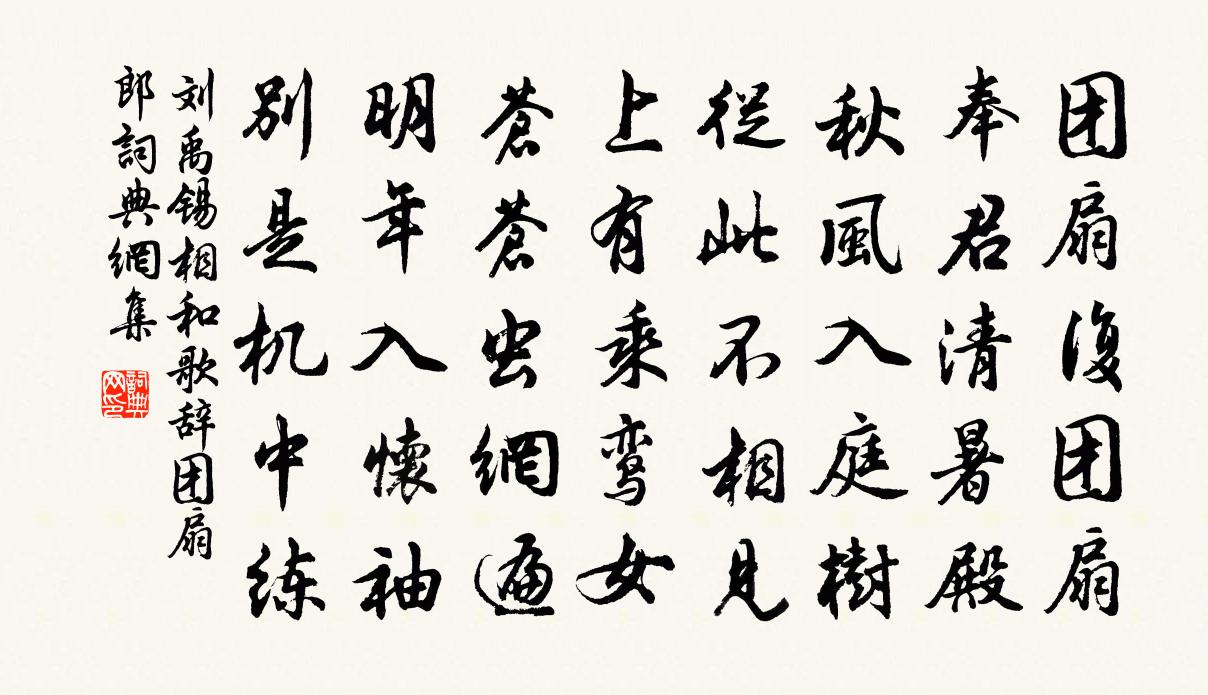 团扇復团扇
奉君清暑殿
秋風入庭樹
從此不相見
上有乘鸾女
蒼蒼虫網遍
明年入懷袖
别是机中练
刘禹锡相和歌辞团扇
郎詞典網集
詞典
网印